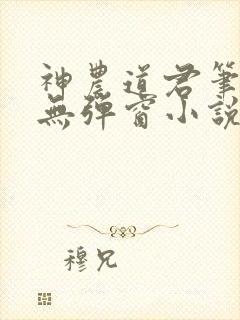 神農道君筆
無彈窗小說
穆兄